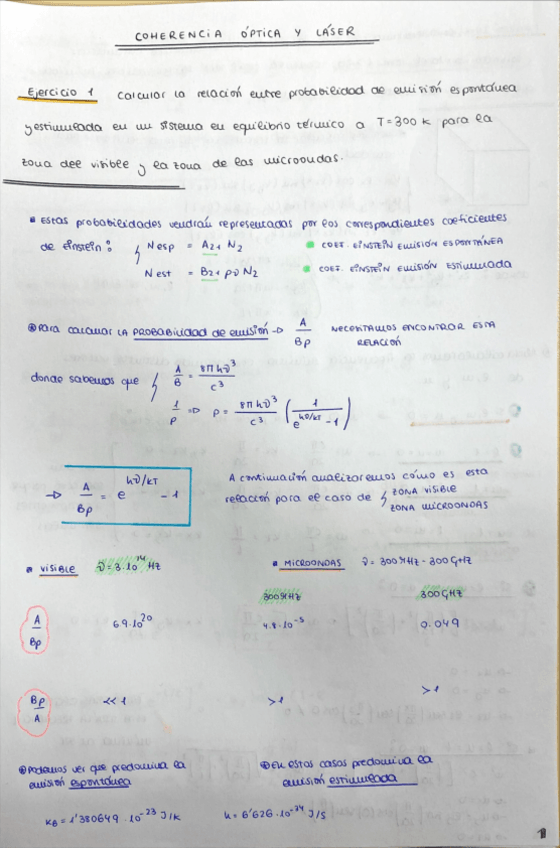 COHERENCIA ÓPTICA Y LÁSER
Ejercicio 1 Calcular la relación entre probabilidad de emisión espontánea
y estimulada en un sistema en equilibrio térmico a T=300 K para la
zona del visible y la zona de las microondas.
Estas probabilidades vendrán representadas por los correspondientes coeficientes
de Einstein: { Nesp = A21 N2 COEF. EINSTEIN EMISIÓN ESPONTÁNEA
Nest = B21 ρν N2 COEF. EINSTEIN EMISIÓN ESTIMULADA
Para calcular LA PROBABILIDAD de emisión → A/Bρ NECESITAMOS ENCONTRAR ESTA RELACIÓN
donde sabemos que { A/B = 8πhν³/c³
1/ρ ⇒ ρ = 8πhν³/c³ (1/(e^(hν/kT) - 1))
→ A/Bρ = e^(hν/kT) - 1 A continuación analizaremos cómo es esta
relación para el caso de { ZONA VISIBLE
ZONA MICROONDAS
VISIBLE ν = 3·10^14 Hz MICROONDAS ν = 300MHz - 300GHz
300MHz 300GHz
A/Bρ 6.9·10^20 4.8·10^-5 0.049
Bρ/A << 1 >1 >1
Podemos ver que predomina la
emisión espontánea
En estos casos predomina la
emisión estimulada
KB = 1'380649·10^-23 J/K h = 6'626·10^-34 J/s
1